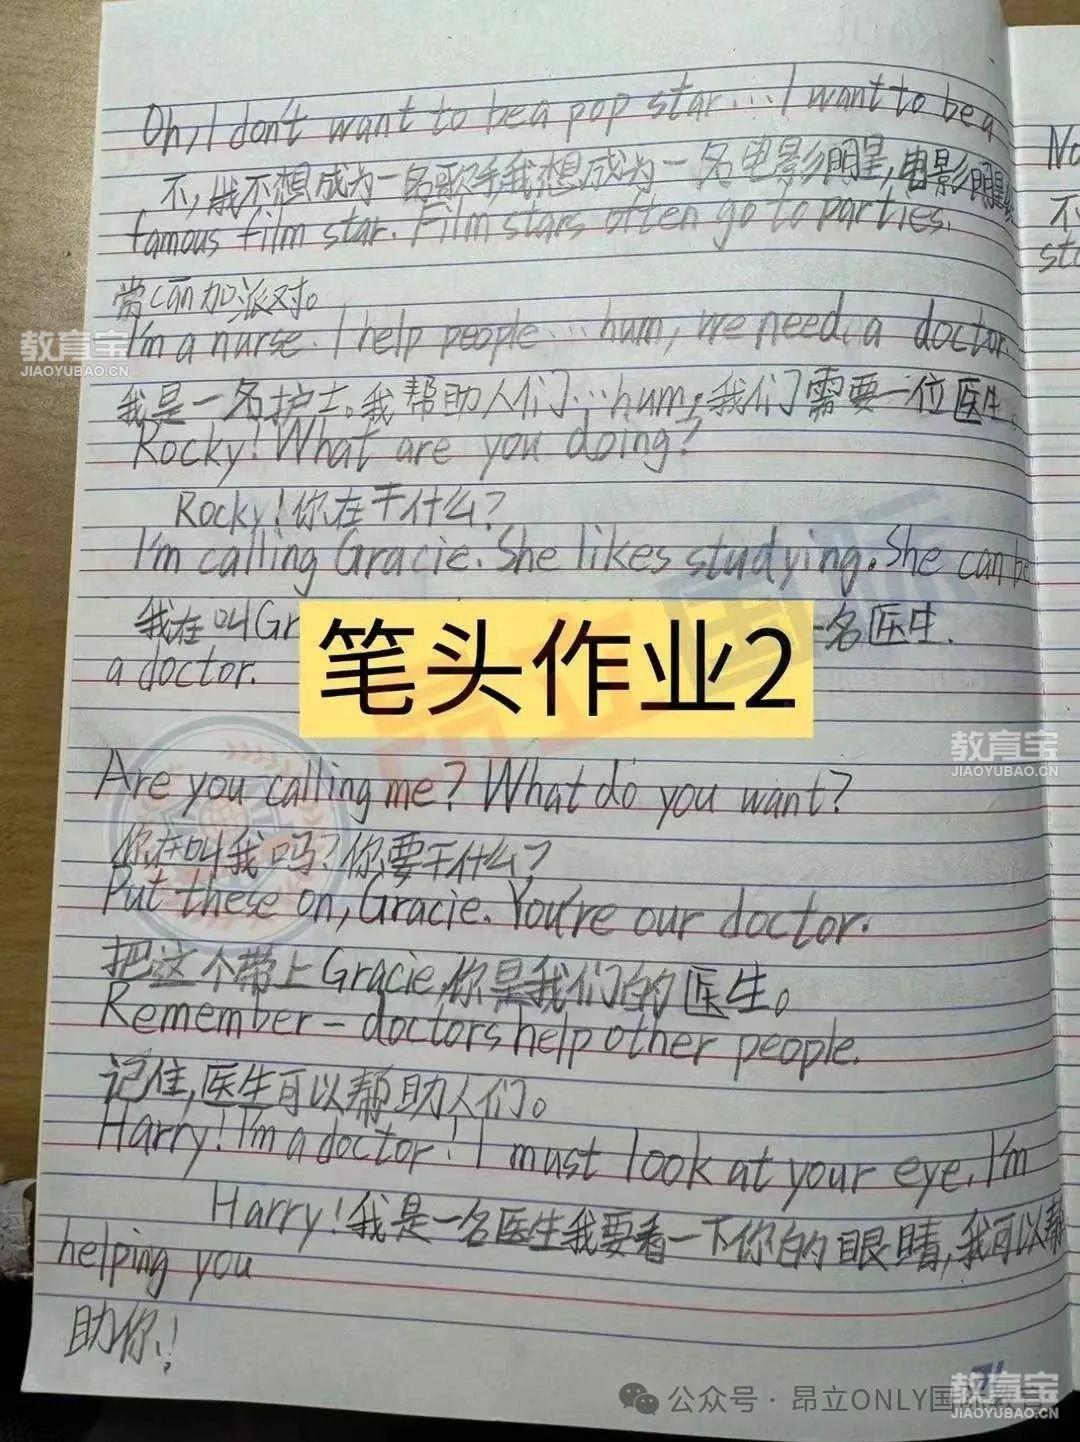 Oh, I don't want to be a pop star... I want to be a
不,我不想成为一名歌手我想成为一名电影明星,电影明星
famous film star. Film stars often go to parties.
常can加派对。
I'm a nurse. I help people...hum, we need a doctor.
我是一名护士。我帮助人们...hum,我们需要一位医生。
Rocky! What are you doing?
Rocky!你在干什么?
I'm calling Gracie. She likes studying. She can be
我在叫Gr
一名医生.
a doctor.
笔头作业2
Are you calling me? What do you want?
你在叫我吗?你要干什么?
Put these on, Gracie. You're our doctor.
把这个带上Gracie,你是我们的医生。
Remember - doctors help other people.
记住,医生可以帮助人们。
Harry! I'm a doctor! I must look at your eye. I'm
Harry!我是一名医生我要看一下你的眼睛,我可以帮
helping you
助你!
No
不
教育宝
JIAOYUBAO.CN
教育宝
JIAOYUBAO.CN
公众号·昂立ONLY国
教育宝
JIAOYUBAO.CN